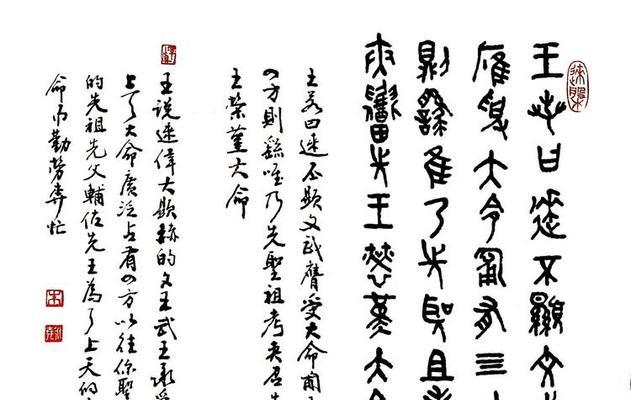 王若曰逨不顯文
雁受大令匍有
則繇隹乃先聖且
夾召先王爵堇大令
王若曰逨丕顯文武膺受大命匍
四方則繇唯乃先聖祖考夾召先
王榮堇大命
王说逨偉大顯赫的文王武王承受
上了大命廣泛占有四方以往你聖
的先祖先父輔佐先王為了上天的
命而勤勞奔忙